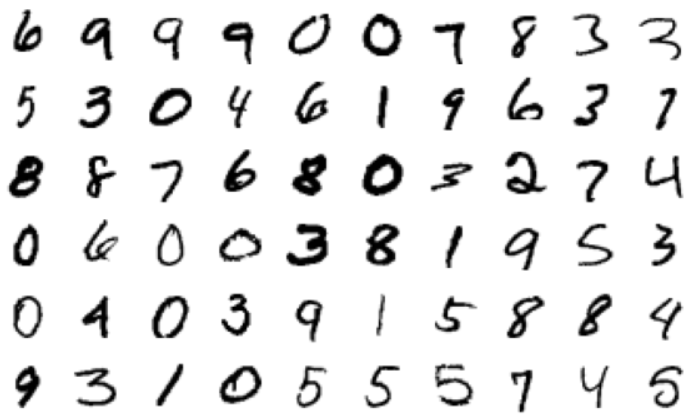 6 9 9 9 0 0 7 8 3 3
5 3 0 4 6 1 9 6 3 7
8 8 7 6 8 0 3 2 7 4
0 6 0 0 3 8 1 9 5 3
0 4 0 3 9 1 5 8 8 4
9 3 1 0 5 5 5 7 4 5